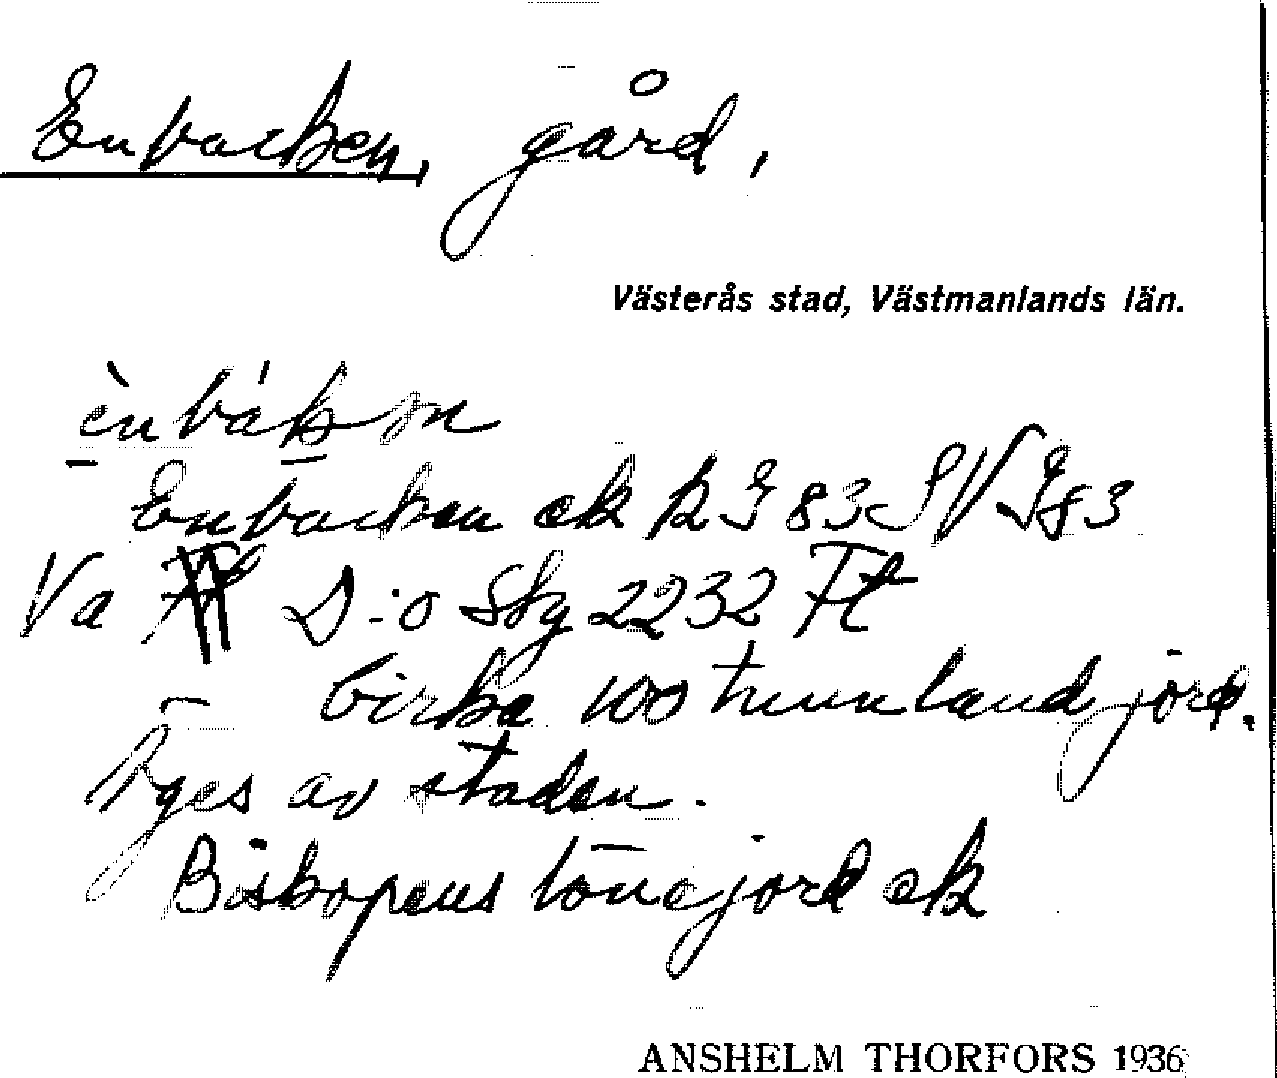 Enbacken, gård,
Västerås stad, Västmanlands län.
ènbákən
Enbacken ek R I 83 SV I 83
Va D:o Skg 2232 Ft
Cirka 100 tunnland jord.
Äges av staden.
Biskopens lönejord ek
ANSHELM THORFORS 1936